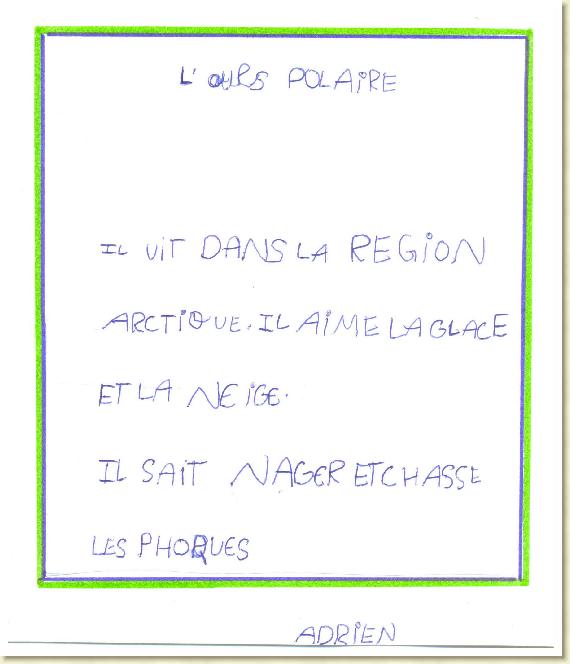 L'OURS POLAiRE
IL ViT DANS LA REGiON
ARCTiQUE. IL AiME LA GLACE
ET LA NEiGE.
IL SAiT NAGER ET CHASSE
LES PHOQUES
ADRiEN